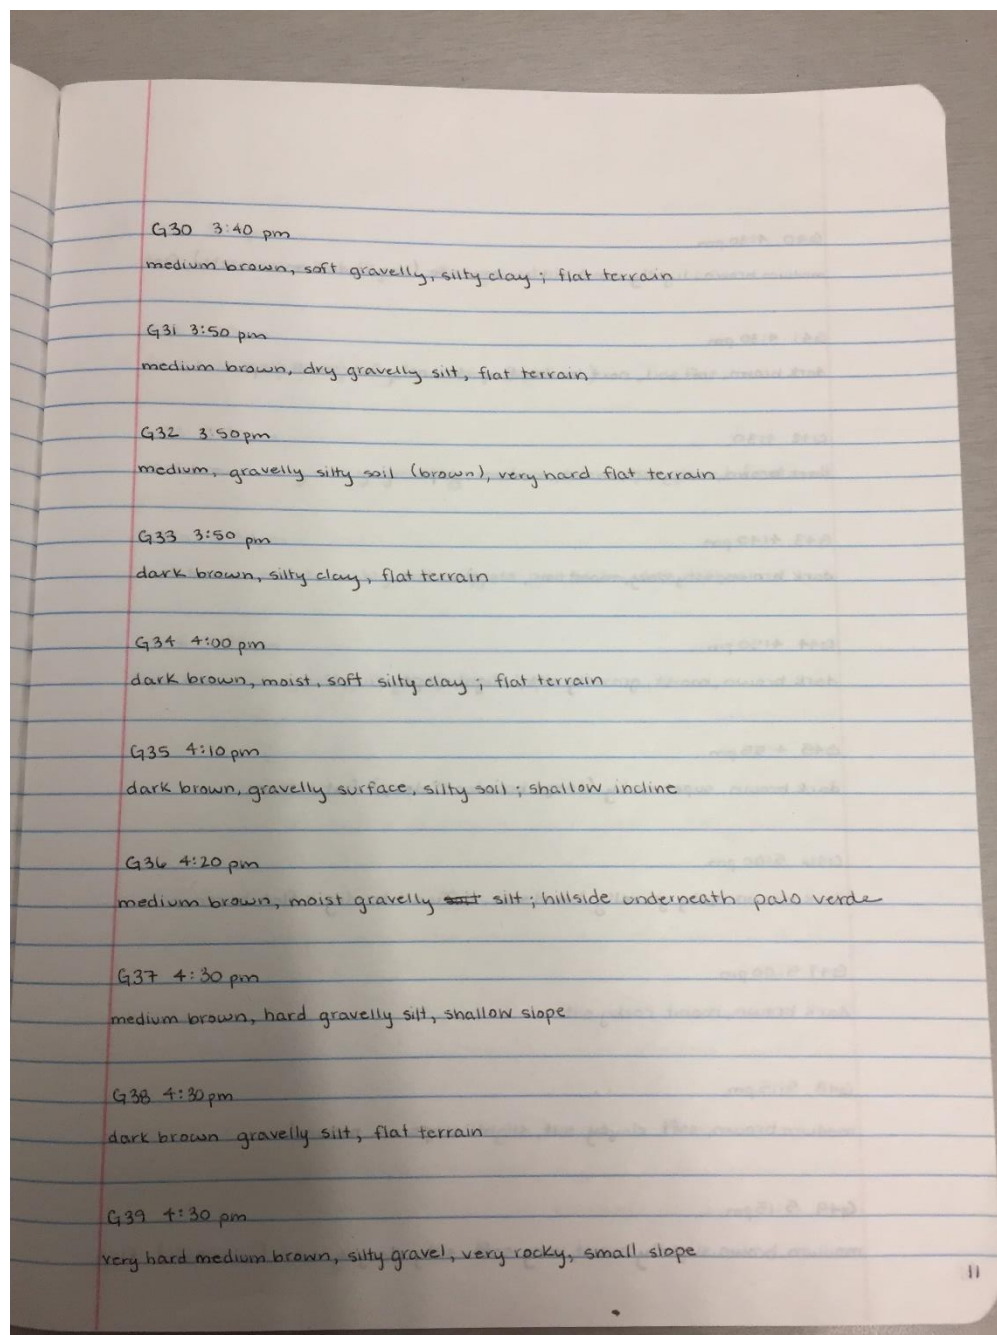 G30 3:40 pm
medium brown, soft gravelly, silty clay; flat terrain
G31 3:50 pm
medium brown, dry gravelly silt, flat terrain
G32 3:50pm
medium, gravelly silty soil (brown), very hard flat terrain
G33 3:50 pm
dark brown, silty clay, flat terrain
G34 4:00 pm
dark brown, moist, soft silty clay; flat terrain
G35 4:10 pm
dark brown, gravelly surface, silty soil; shallow incline
G36 4:20 pm
medium brown, moist gravelly silt; hillside underneath palo verde
G37 4:30 pm
medium brown, hard gravelly silt, shallow slope
G38 4:30pm
dark brown gravelly silt, flat terrain
G39 4:30 pm
very hard medium brown, silty gravel, very rocky, small slope
11